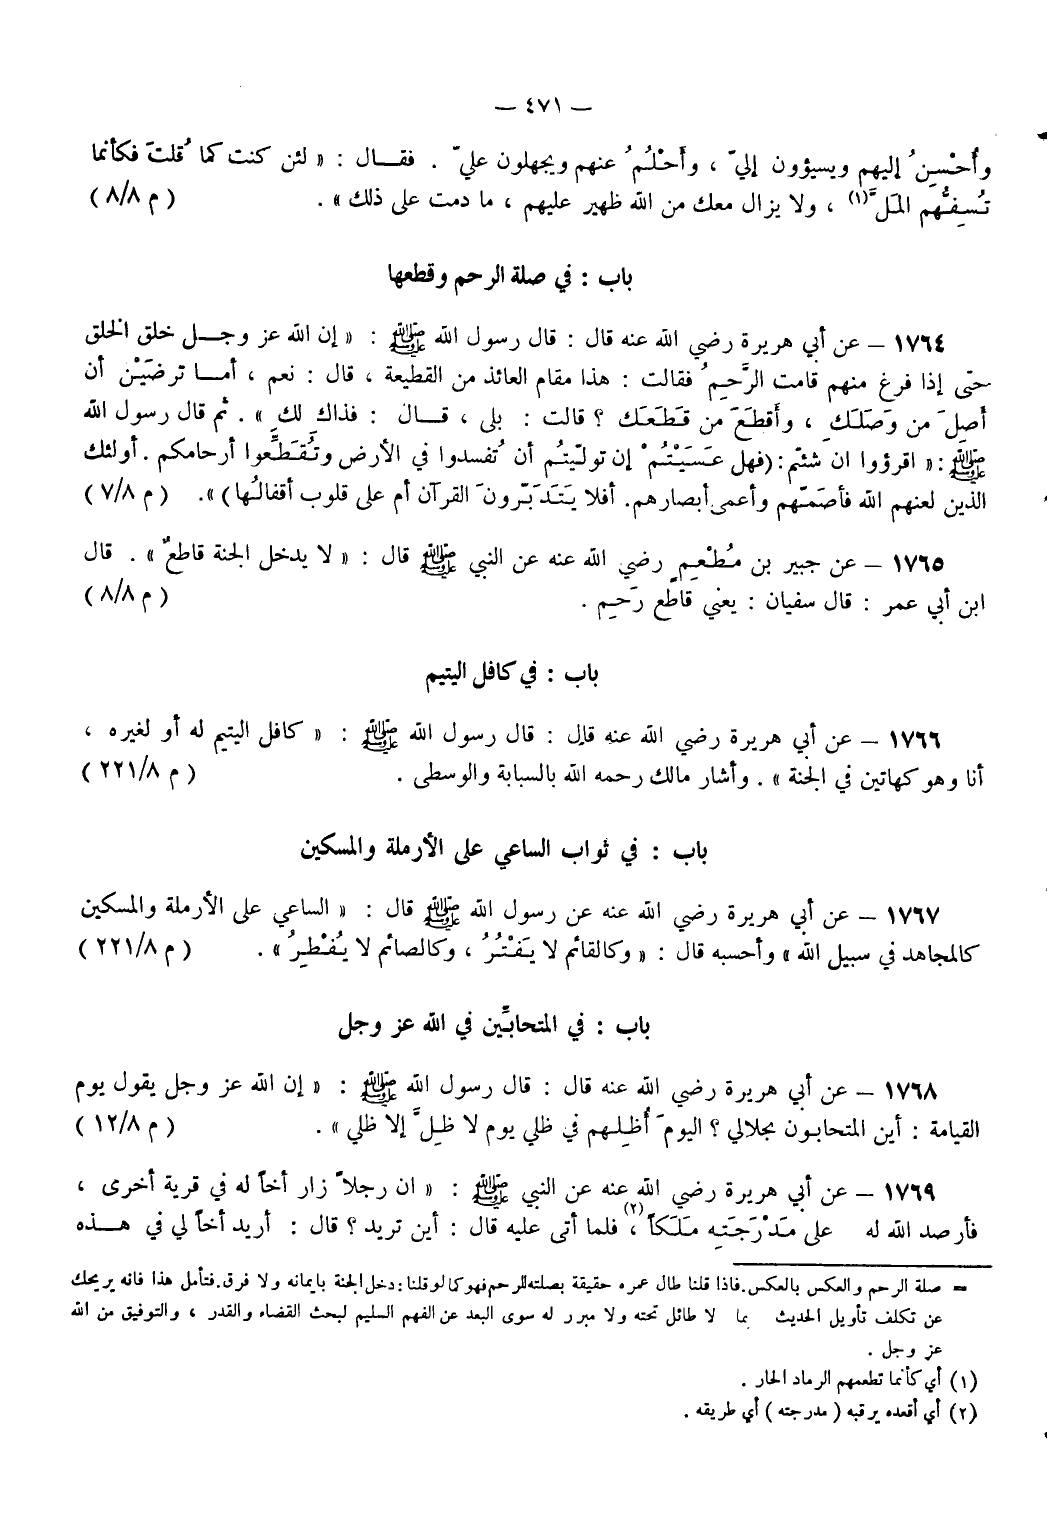 — ٤٧١ —
وأُحْسِنُ إليهم ويسيؤون إليّ ، وأَحْلُمُ عنهم ويجهلون عليّ . فقـــال : « لئن كنت كما قُلتَ فكأنما
تُسِفُّهم المَلَّ (١) ، ولا يزال معك من الله ظهير عليهم ، ما دمت على ذلك » . ( م ٨/٨ )
باب : في صلة الرحم وقطعها
١٧٦٤ – عن أبي هريرة رضي الله عنه قال : قال رسول الله ﷺ : « إن الله عز وجـــل خلق الخلق
حتى إذا فرغ منهم قامت الرَّحِمُ فقالت : هذا مقام العائذ من القطيعة ، قال : نعم ، أمـــا ترضَيْن أن
أصِلَ من وَصَلَكِ ، وأَقطَعَ من قَطَعَك ؟ قالت : بلى ، قـــال : فذاكِ لكِ » . ثم قال رسول الله
ﷺ : « اقرؤوا ان شئتم : (فهل عَسَيْتُمْ إن تولّيتُم أن تُفسدوا في الأرض وتُقَطِّعوا أرحامكم . أولئك
الذين لعنهم الله فأصَمّهم وأعمى أبصارهم. أفلا يَتَدَبّرونَ القرآن أم على قلوب أقفالُها) ». ( م ٧/٨ )
١٧٦٥ – عن جبير بن مُطْعِمٍ رضي الله عنه عن النبي ﷺ قال : « لا يدخل الجنة قاطعٌ » . قال
ابن أبي عمر : قال سفيان : يعني قاطع رَحِمٍ . ( م ٨/٨ )
باب : في كافل اليتيم
١٧٦٦ – عن أبي هريرة رضي الله عنه قال : قال رسول الله ﷺ : « كافل اليتيم له أو لغيره ،
أنا وهو كهاتين في الجنة » . وأشار مالك رحمه الله بالسبابة والوسطى . ( م ٢٢١/٨ )
باب : في ثواب الساعي على الأرملة والمسكين
١٧٦٧ – عن أبي هريرة رضي الله عنه عن رسول الله ﷺ قال : « الساعي على الأرملة والمسكين
كالمجاهد في سبيل الله » وأحسبه قال : « وكالقائم لا يَفْتُرُ ، وكالصائم لا يُفْطِرُ » . ( م ٢٢١/٨ )
باب : في المتحابِّين في الله عز وجل
١٧٦٨ – عن أبي هريرة رضي الله عنه قال : قال رسول الله ﷺ : « إن الله عز وجل يقول يوم
القيامة : أين المتحابون بجلالي ؟ اليومَ أُظِلهم في ظلي يوم لا ظلَّ إلا ظلي » . ( م ١٢/٨ )
١٧٦٩ – عن أبي هريرة رضي الله عنه عن النبي ﷺ : « ان رجلاً زار أخاً له في قرية أخرى ،
فأرصد الله له على مَدْرَجَتِه مَلَكاً (٢) ، فلما أتى عليه قال : أين تريد ؟ قال : أريد أخاً لي في هـــذه
= صلة الرحم والعكس بالعكس. فاذا قلنا طال عمره حقيقة بصلته للرحم فهو كما لو قلنا : دخل الجنة بايمانه ولا فرق. فتأمل هذا فانه يريحك
عن تكلف تأويل الحديث بما لا طائل تحته ولا مبرر له سوى البعد عن الفهم السليم لبحث القضاء والقدر ، والتوفيق من الله
عز وجل .
(١) أي كأنما تطعمهم الرماد الحار .
(٢) أي أقعده يرقبه ( مدرجته ) أي طريقه .